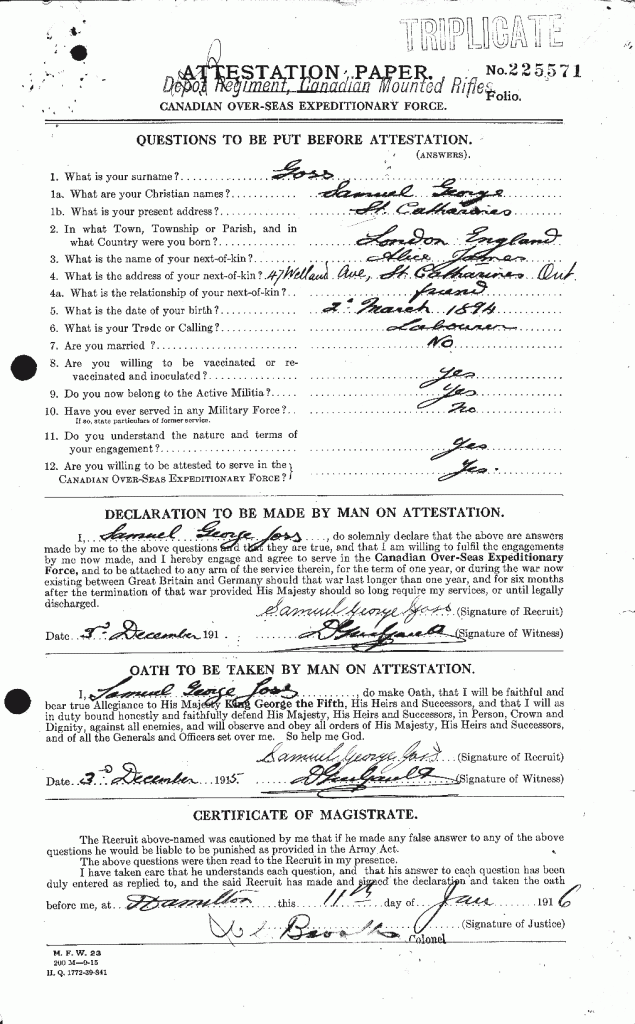 TRIPLICATE
ATTESTATION PAPER. No. 225571
Depot Regiment, Canadian Mounted Rifles Folio.
CANADIAN OVER-SEAS EXPEDITIONARY FORCE.
QUESTIONS TO BE PUT BEFORE ATTESTATION.
(ANSWERS).
1. What is your surname? Goss
1a. What are your Christian names? Samuel George
1b. What is your present address? St. Catharines
2. In what Town, Township or Parish, and in
what Country were you born? London England
3. What is the name of your next-of-kin? Alice
4. What is the address of your next-of-kin? 47 Welland Ave, St. Catharines Ont
4a. What is the relationship of your next-of-kin? friend
5. What is the date of your birth? 2nd March 1894
6. What is your Trade or Calling? Labourer
7. Are you married? No
8. Are you willing to be vaccinated or re-
vaccinated and inoculated? Yes
9. Do you now belong to the Active Militia? Yes
10. Have you ever served in any Military Force? No
If so, state particulars of former service.
11. Do you understand the nature and terms of
your engagement? Yes
12. Are you willing to be attested to serve in the
CANADIAN OVER-SEAS EXPEDITIONARY FORCE? Yes.
DECLARATION TO BE MADE BY MAN ON ATTESTATION.
I, Samuel George Goss, do solemnly declare that the above are answers
made by me to the above questions and that they are true, and that I am willing to fulfil the engagements
by me now made, and I hereby engage and agree to serve in the Canadian Over-Seas Expeditionary
Force, and to be attached to any arm of the service therein, for the term of one year, or during the war now
existing between Great Britain and Germany should that war last longer than one year, and for six months
after the termination of that war provided His Majesty should so long require my services, or until legally
discharged.
Samuel George Goss (Signature of Recruit)
Date 3rd December 191 . (Signature of Witness)
OATH TO BE TAKEN BY MAN ON ATTESTATION.
I, Samuel George Goss, do make Oath, that I will be faithful and
bear true Allegiance to His Majesty King George the Fifth, His Heirs and Successors, and that I will as
in duty bound honestly and faithfully defend His Majesty, His Heirs and Successors, in Person, Crown and
Dignity, against all enemies, and will observe and obey all orders of His Majesty, His Heirs and Successors,
and of all the Generals and Officers set over me. So help me God.
Samuel George Goss (Signature of Recruit)
Date 3rd December 1915 (Signature of Witness)
CERTIFICATE OF MAGISTRATE.
The Recruit above-named was cautioned by me that if he made any false answer to any of the above
questions he would be liable to be punished as provided in the Army Act.
The above questions were then read to the Recruit in my presence.
I have taken care that he understands each question, and that his answer to each question has been
duly entered as replied to, and the said Recruit has made and signed the declaration and taken the oath
before me, at Hamilton this 11th day of Jan 1916
(Signature of Justice)
Colonel
M. F. W. 23
200 M—9-15
H. Q. 1772-39-841